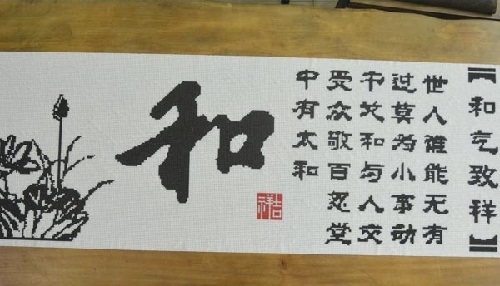 【和气致祥】
世人谁能无有
过莫为小事动
干戈和与人交
受众敬百忍堂
中有太和
和
吉祥